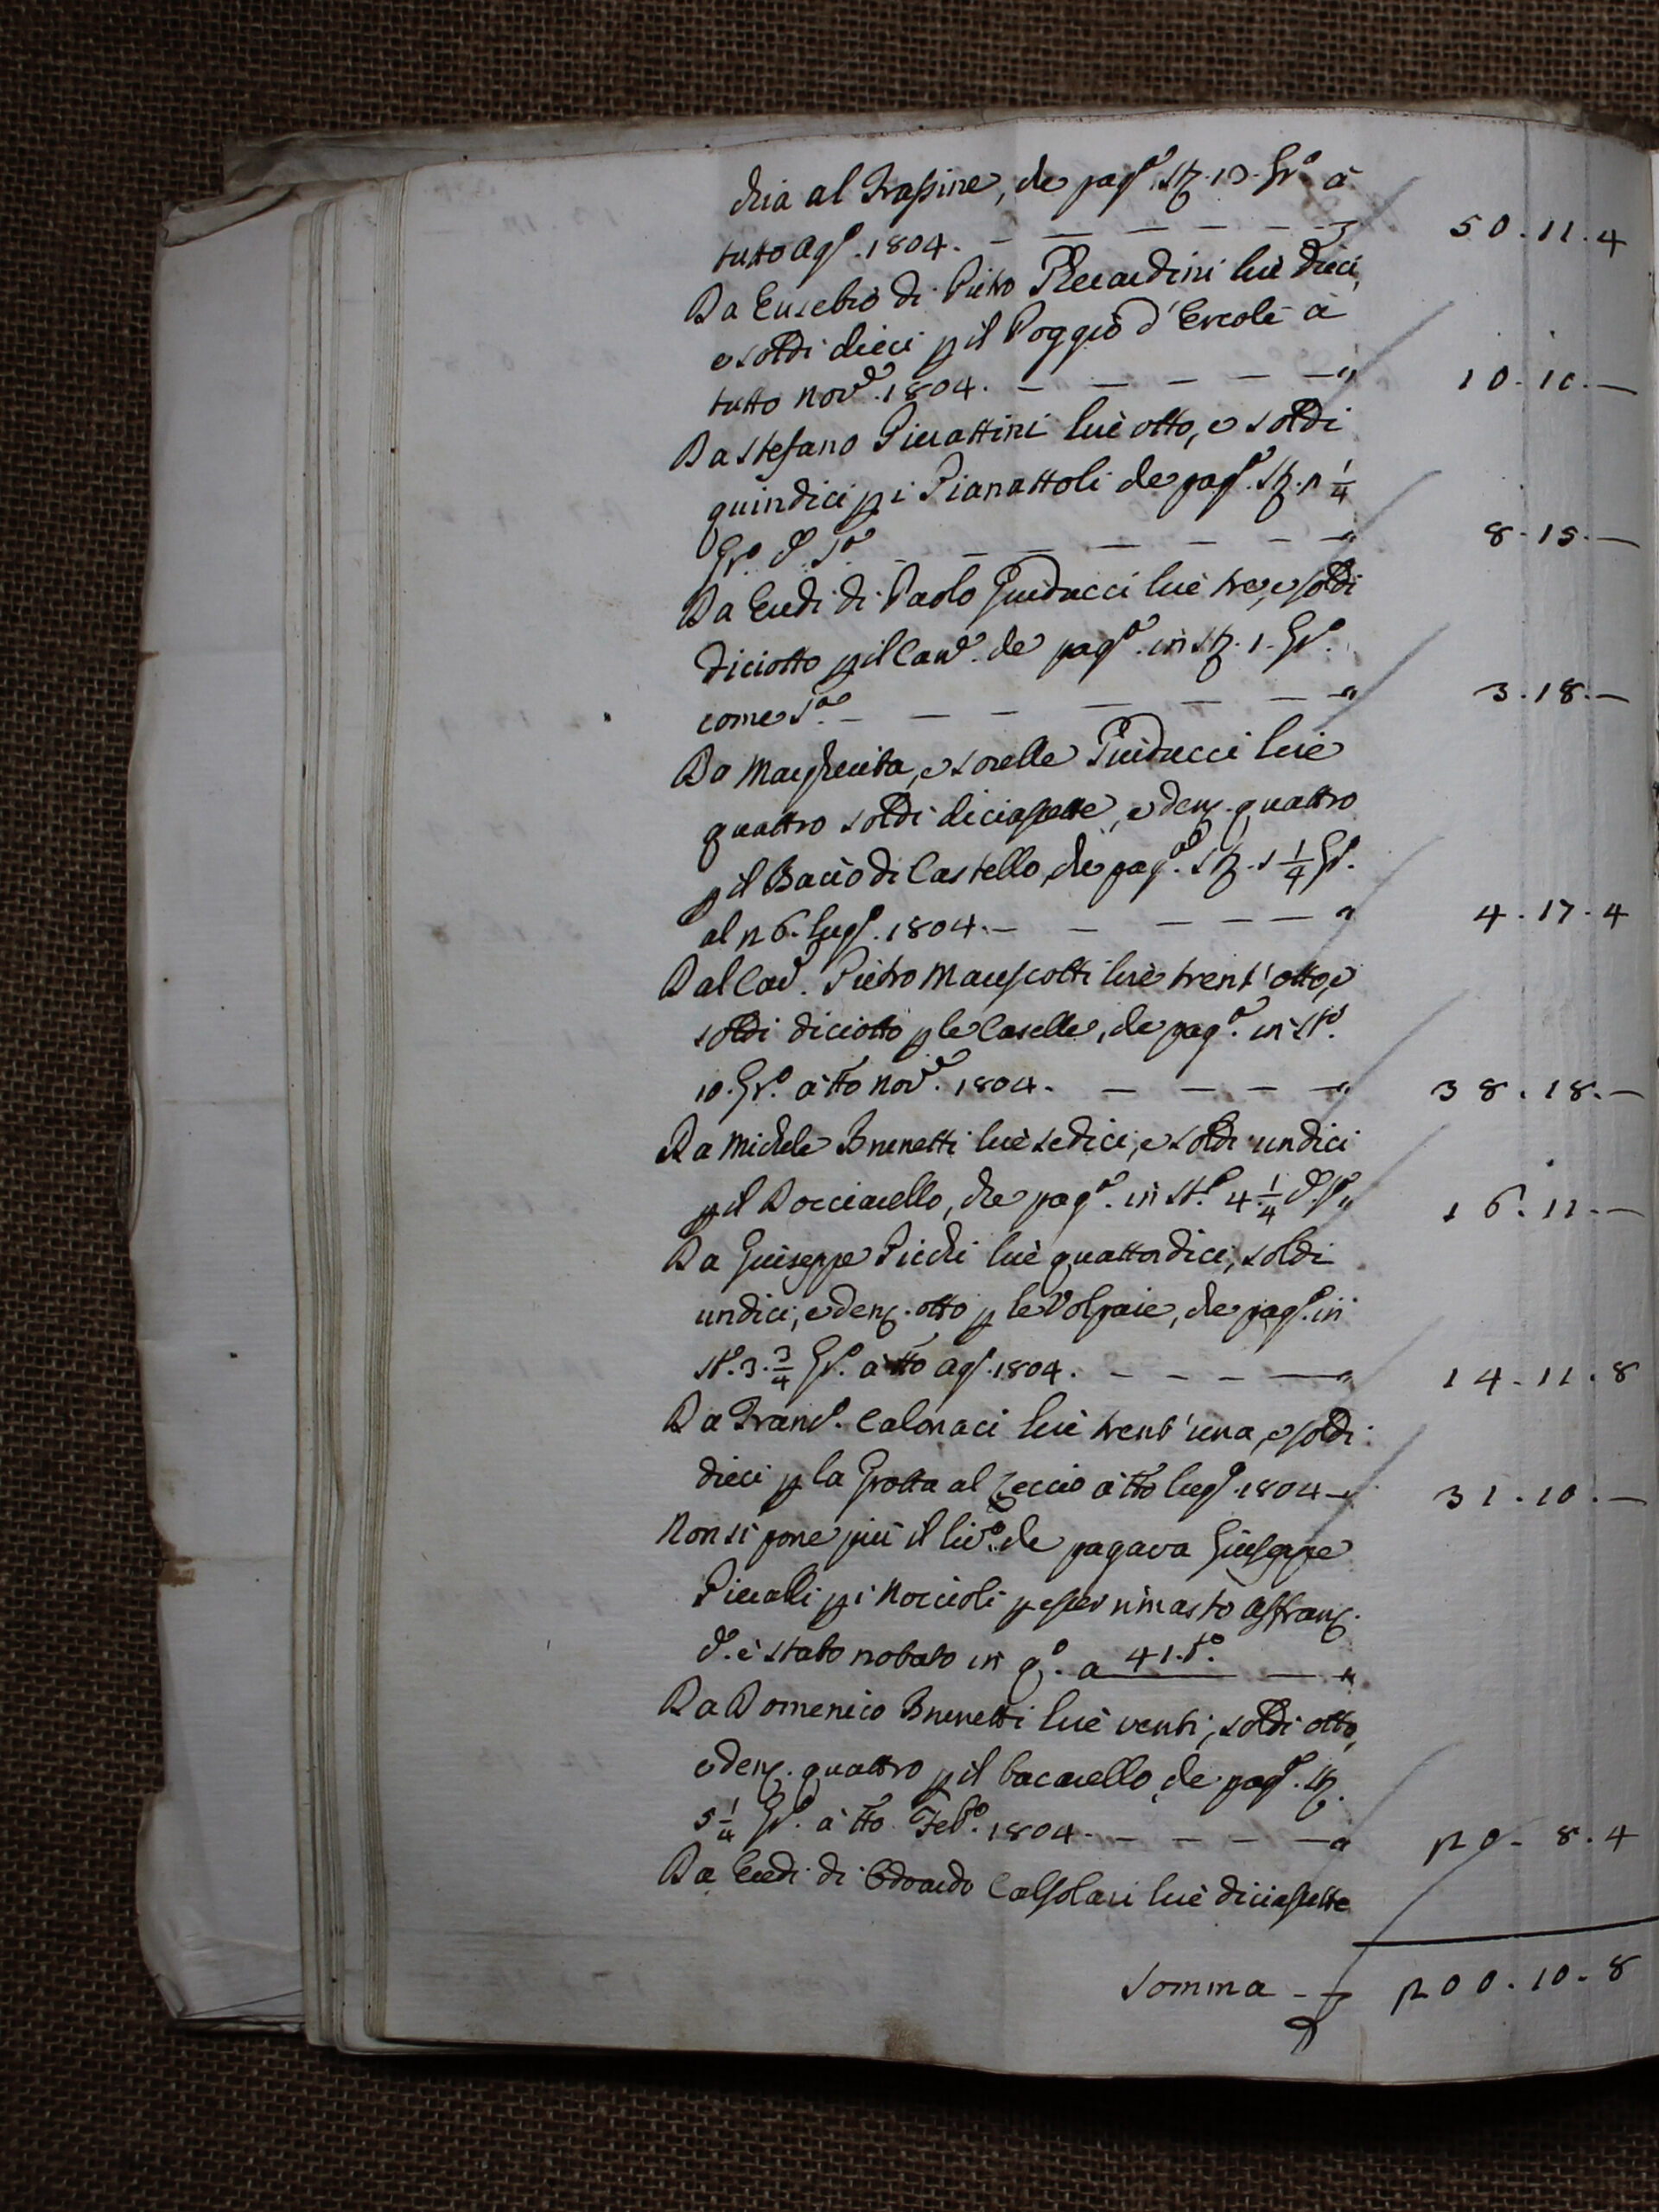 chia al Frassine, che pag.o St. 13. Gr.o à
tutto Ag.o 1804. — — — — — — " 50.11.4
Da Eusebio di Pietro Pierardini lire dieci,
e soldi dieci p il Poggio d'Ercole à
tutto Nov.e 1804. — — — — — " 10.10.—
Da Stefano Pierattini lire otto, e soldi
quindici p i Pianattoli che pag.o St. 2 1/4
Gr.o d.o S.a — — — — — — " 8.15.—
Da Eredi di Paolo Guiducci lire tre, e soldi
diciotto p il Cand. che pag.o in St. 1. Gr.o
come S.a — — — — — — " 3.18.—
Da Margherita, e sorelle Guiducci lire
quattro soldi diciassette, e den. quattro
p il Bacìo di Castello, che pag.o St. 1 1/4 Gr.o
al 26. Lug.o 1804. — — — — — " 4.17.4
Dal Cav. Pietro Marescotti lire trent'otto, e
soldi diciotto p le Caselle, che pag.o in St.a
10. Gr.o à tto Nov.e 1804. — — — — " 38.18.—
Da Michele Brunetti lire sedici, e soldi undici
p il Docciarello, che pag.o in St.a 4 1/4 d.o S.a " 16.11.—
Da Giuseppe Picchi lire quattordici, soldi
undici, e den. otto p le Volpaie, che pag.o in
St.a 3. 3/4 Gr.o à tto Ag.o 1804. — — — — " 14.11.8
Da Franc.o Calonaci lire trent'una, e soldi
dieci p la Grotta al Leccio à tto Lug.o 1804 — " 31.10.—
Non si pone più il liv.o che pagava Giuseppe
Piccalli p i Noccioli p esser rimasto affranc.
d.o è stato notato in q.o a 41. t.o — "
Da Domenico Brunetti lire venti, soldi otto,
e den. quattro p il bacarello, che pag.o St.
5 1/4 Gr.o à tto Feb.o 1804. — — — — " 20.8.4
Da Eredi di Edoardo Calsolari lire diciassette
Somma — " 200.10.8